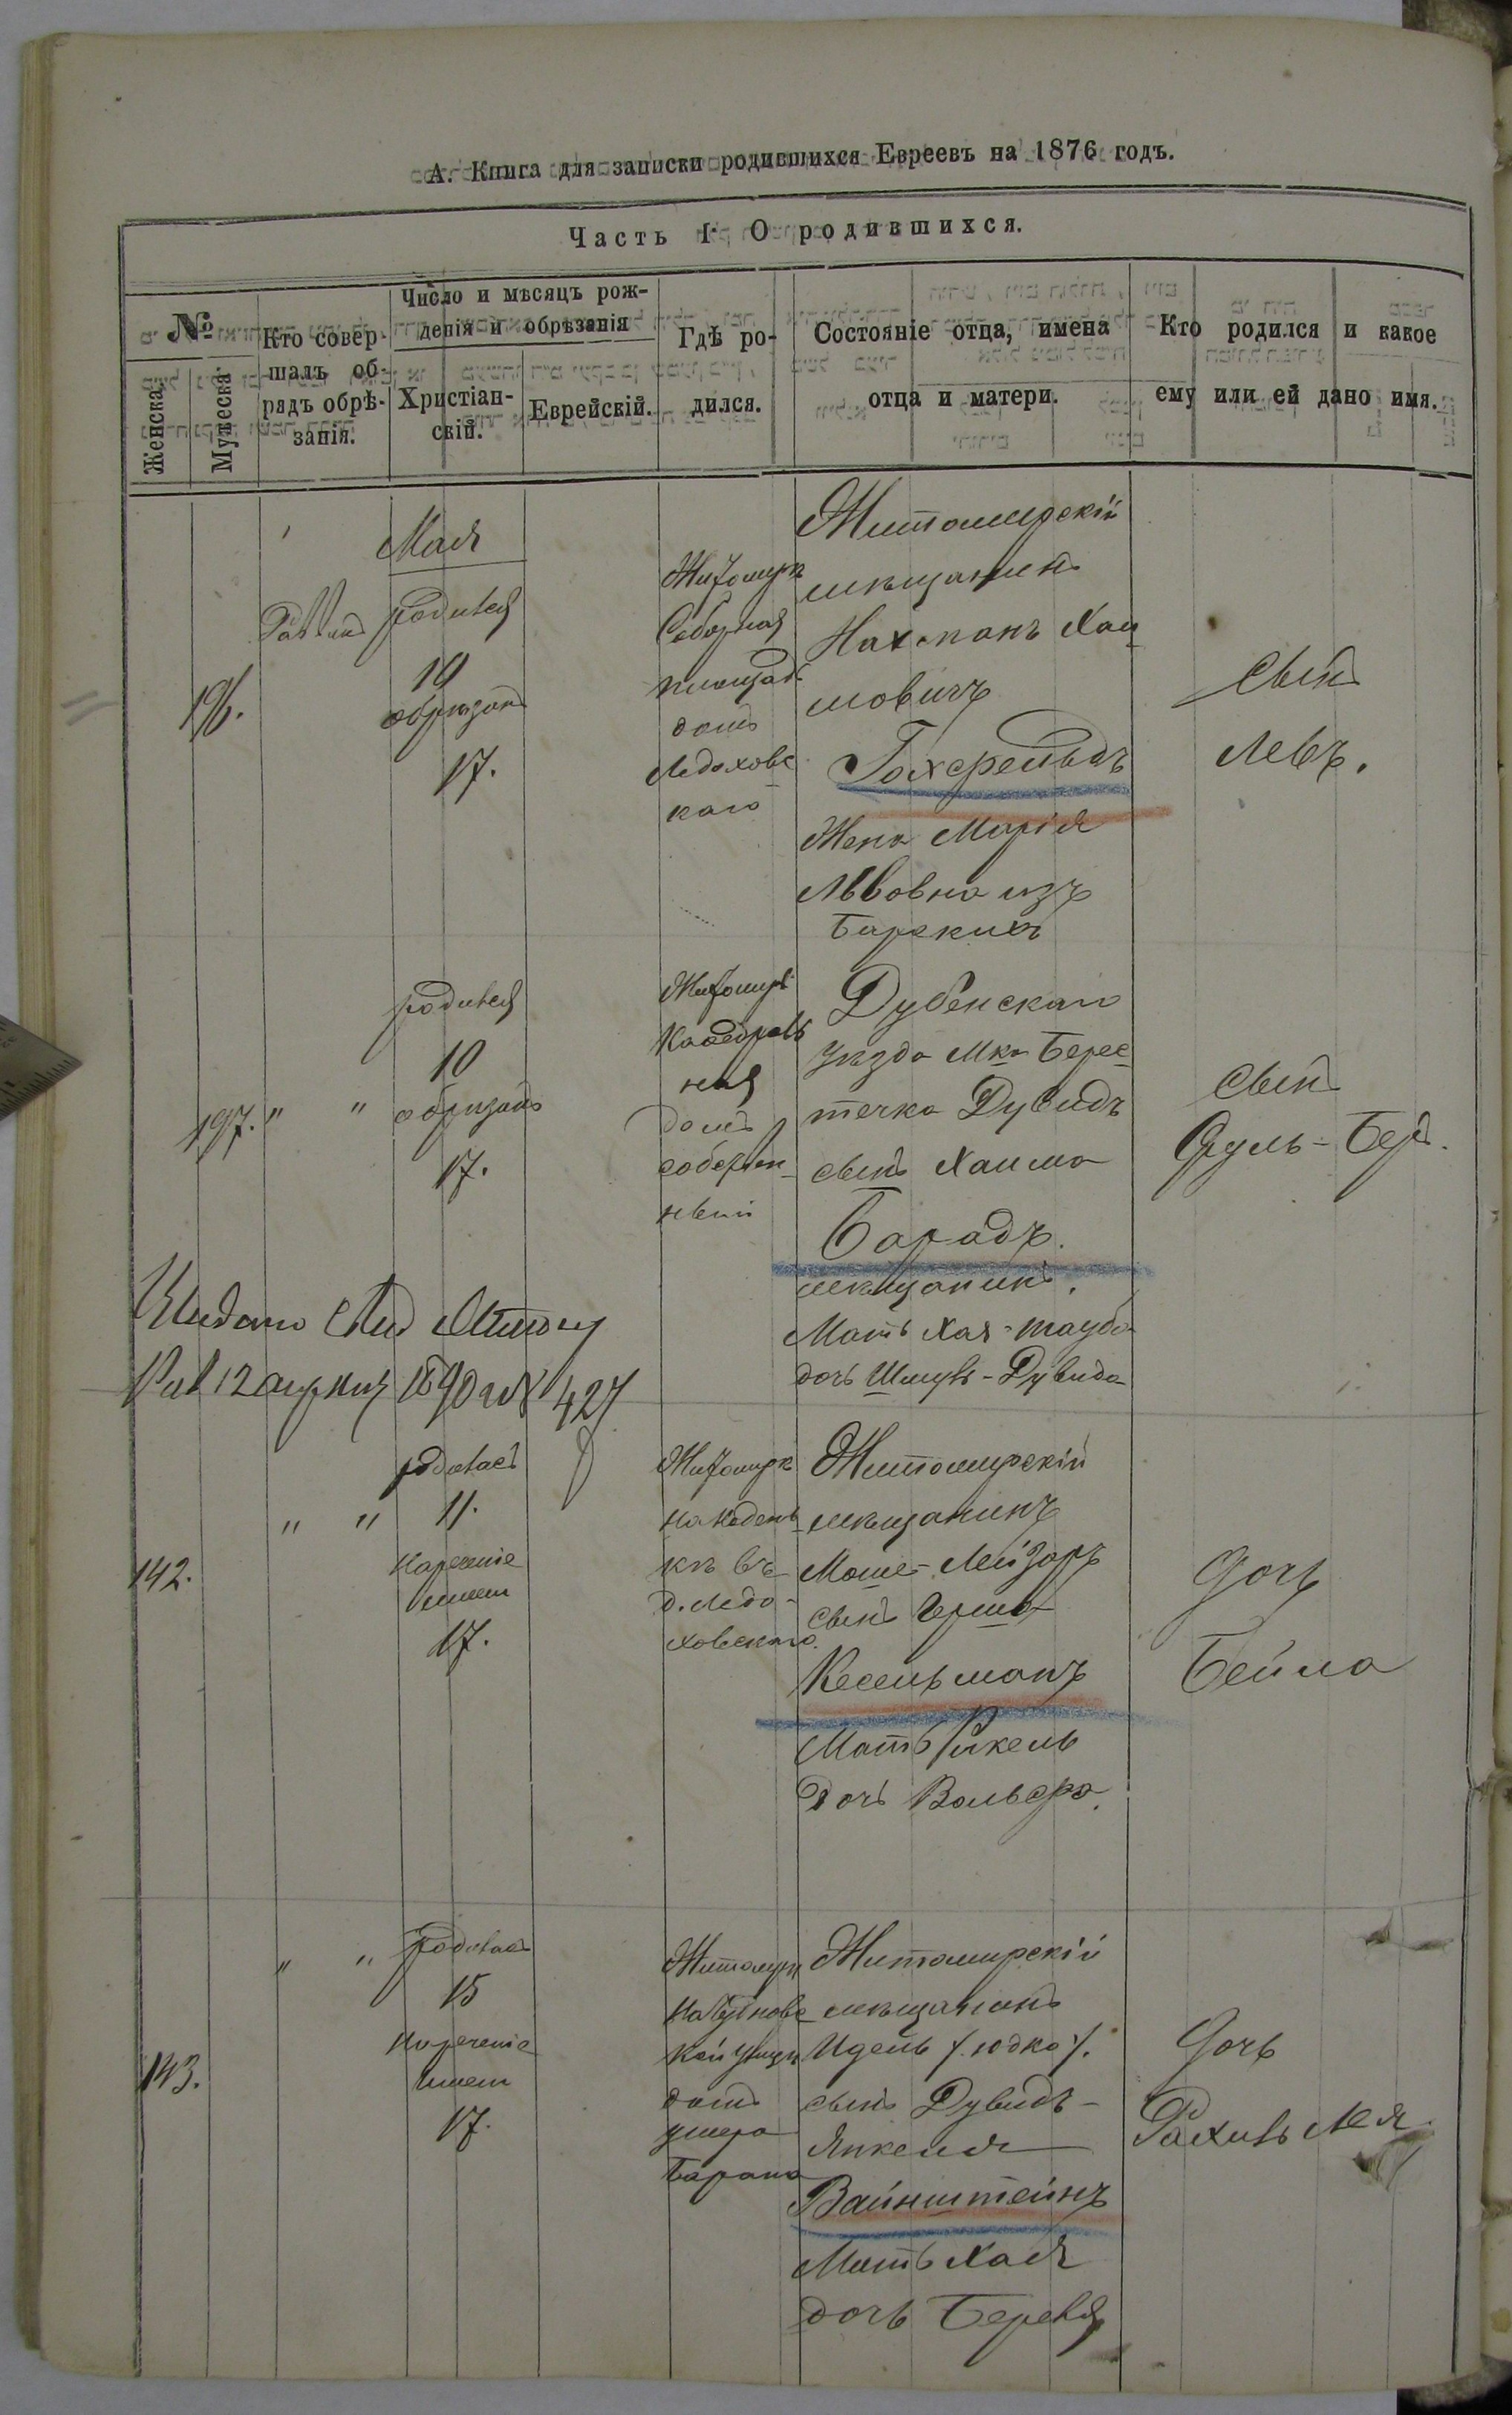 А. Книга для записки родившихся Евреевъ на 1876 годъ.
Часть I. О родившихся.
№
Женска.
Мужеска.
Кто совер-
шалъ об-
рядъ обрѣ-
занія.
Число и мѣсяцъ рож-
денія и обрѣзанія
Христіан-
скій.
Еврейскій.
Гдѣ ро-
дился.
Состояніе отца, имена
отца и матери.
Кто родился и какое
ему или ей дано имя.
196.
Раввинъ
Мая
родился
10
обрезанъ
17.
Житомирѣ
Соборная
площадь
домъ
Ледоховс
каго
Житомирскій
мѣщанинъ
Нахманъ Хаи
мовичъ
Жена Марія
Львовна изъ
Барскихъ
Сынъ
Левъ.
197. " "
родился
10
обрезанъ
17.
Житомирѣ
Кафедраль
ная
домъ
собствен-
ный
Дубенскаго
уѣзда Мка Берес
течка Дувидъ
сынъ Хаима
Барадъ.
мѣщанинъ.
Мать Хая-тауба
дочь Шмуль-Дувида
Сынъ
Сруль-Беръ.
12 апрѣля 1890 427
142.
" "
родилась
11.
Нареченіе
имени
17.
Житомирѣ
въ
д. Ледо-
ховскаго.
Житомирскій
мѣщанинъ
Моше-Лейзоръ
сынъ Герша
Кесельманъ
Мать Рикель
дочь Вольфа.
Дочь
Бейла
143.
" "
родилась
15
Нареченіе
имени
17.
Житомирѣ
на Чудновс
кой улицѣ
домъ
ушера
Барана
Житомирскій
мѣщанинъ
Идель /. Юдко /.
сынъ Дувидъ-
Янкеля
Вайнштейнъ
Мать Хая
дочь Береля
Дочь
Рахиль Лея